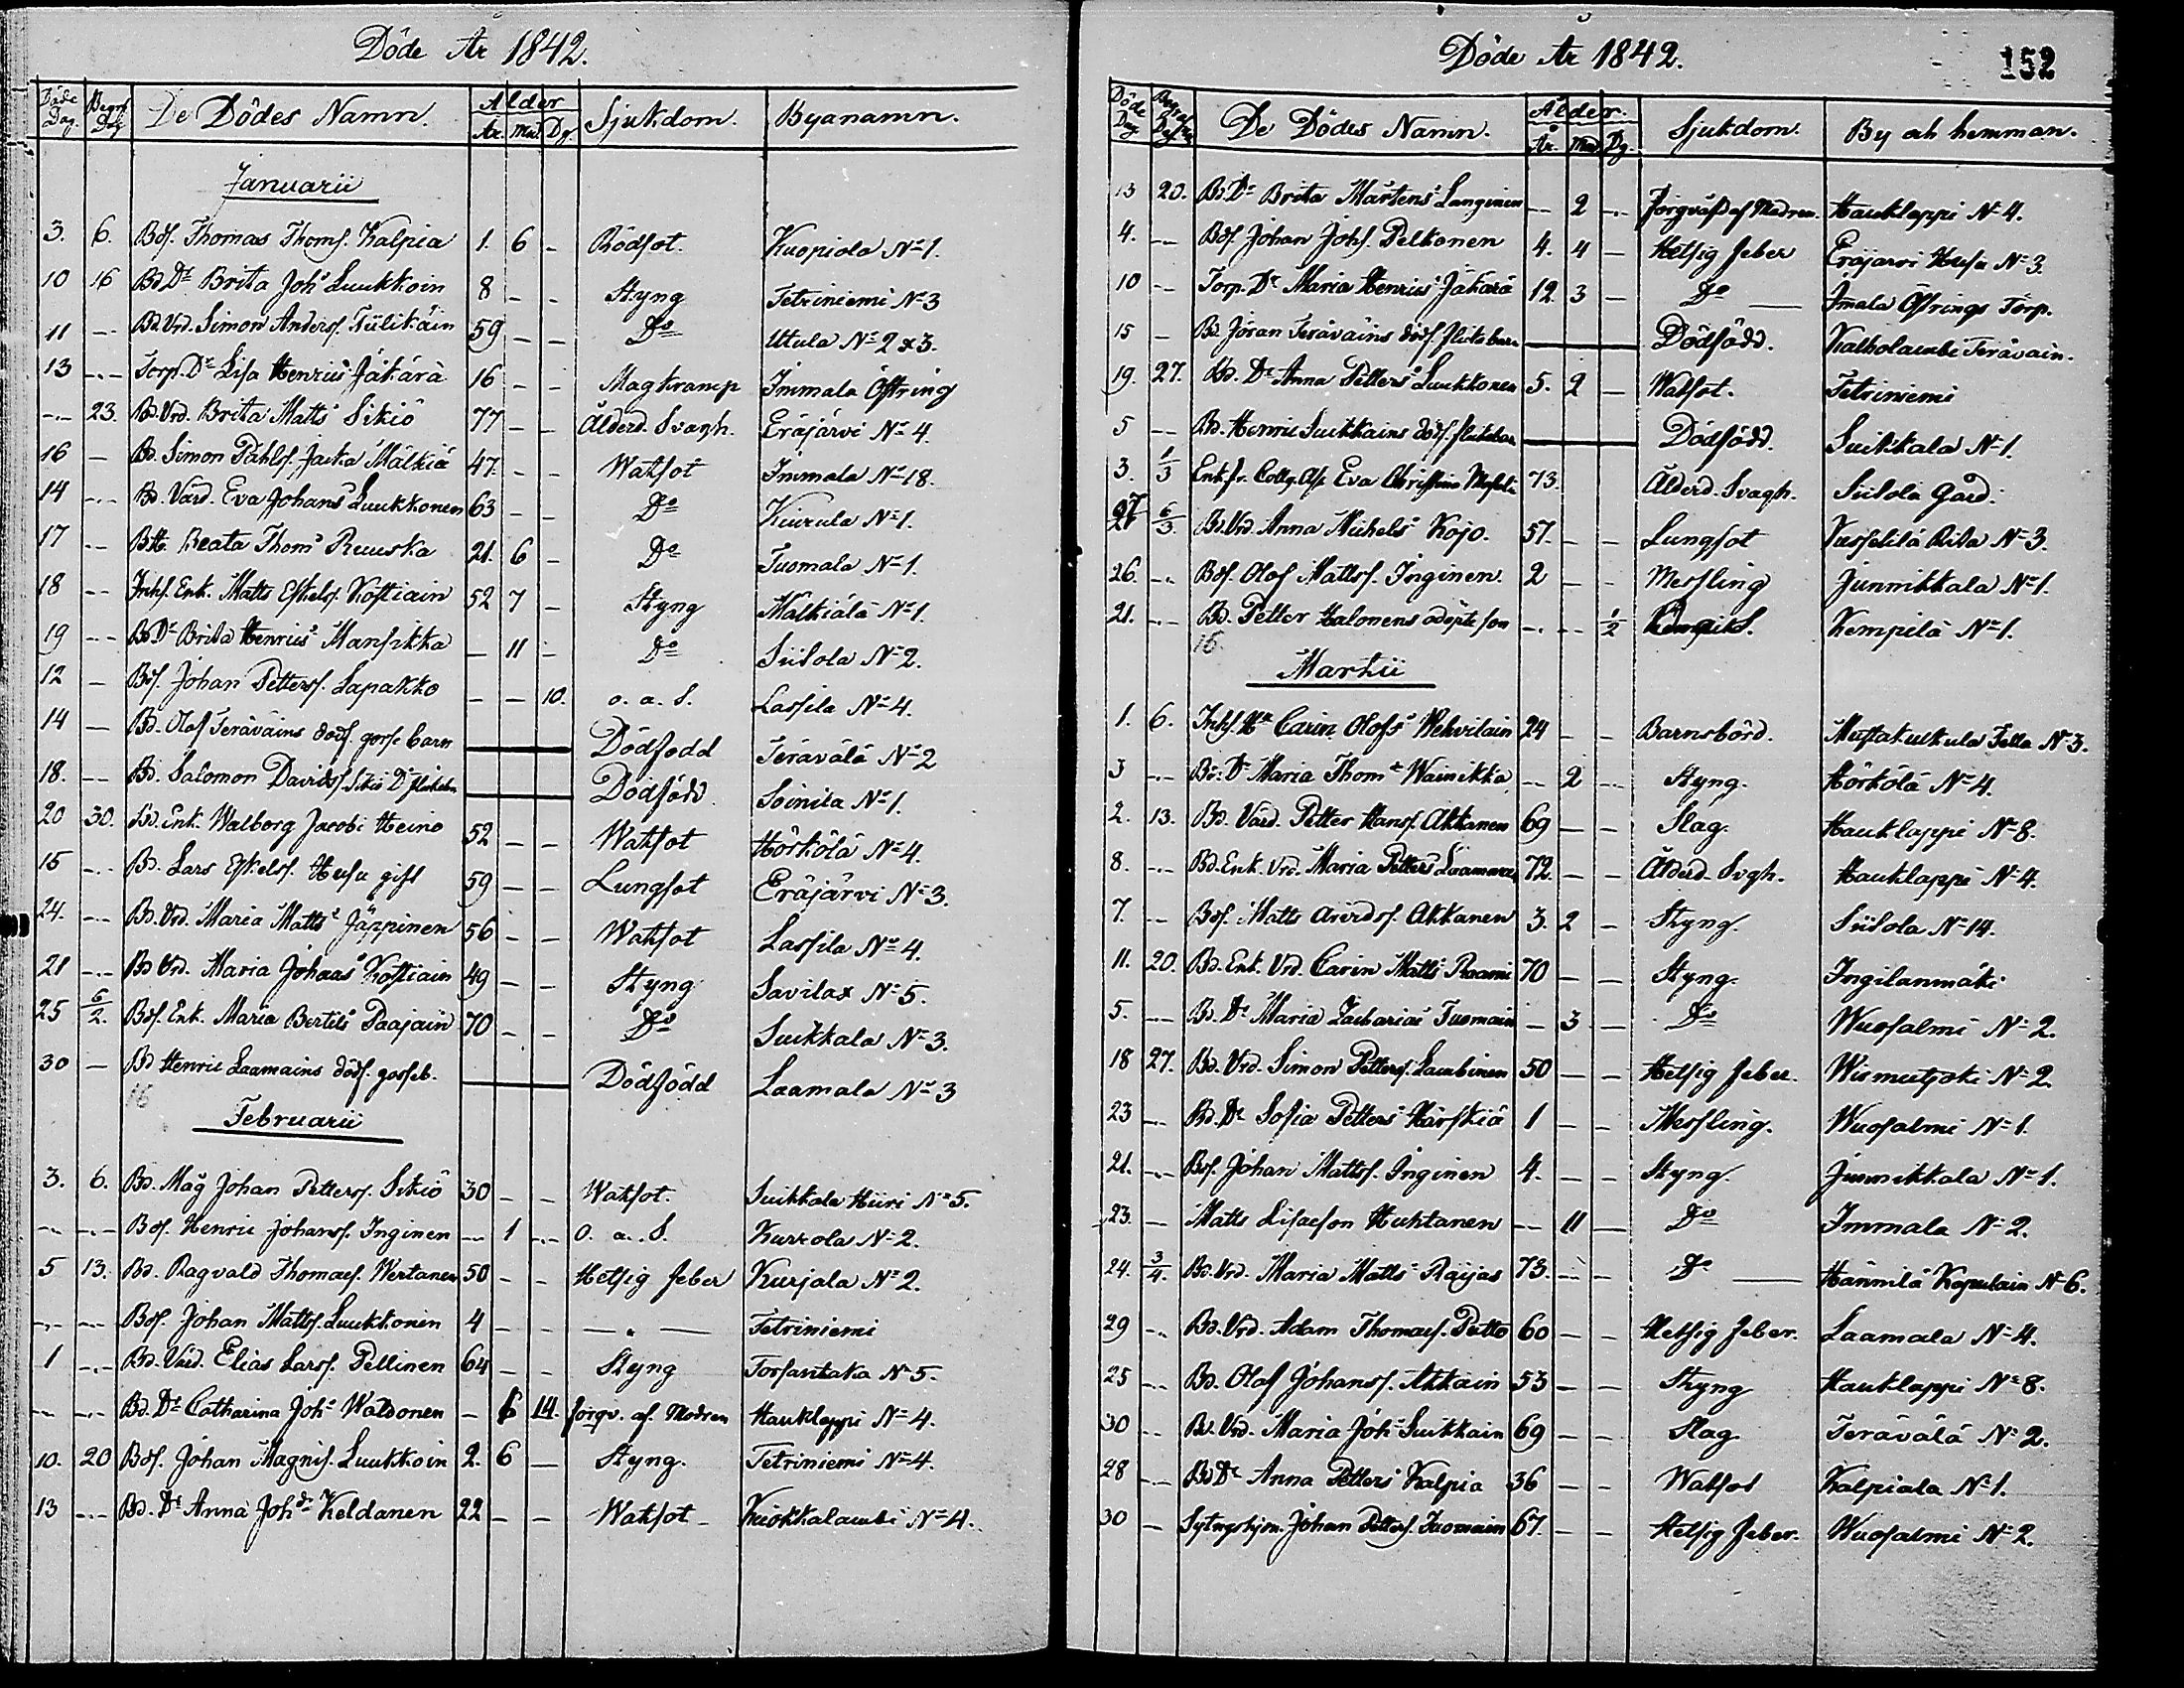 Döde År 1842.
Döde Dag. Begrf Dag De Dödes Namn. Ålder År. Mad. Dg. Sjukdom. Byanamn.
Januarii
3. 6. Bdf. Thomas Thomf. Kalpia 1. 6 - Rödsot. Kuopiola No 1.
10 16 Bd Dr Brita Johs Luukkoin 8 - - Styng Tetriniemi No 3
11 - Bd. Vrd. Simon Andersf. Tiilikäin 59 - - Do Utula No 2 & 3.
13 -.- Torp. Dr Lisa Henrics Jäkärä 16 - - Magkramp Immala Öftring
-.- 23. Bd. Vrd. Brita Matts Sikiö 77 - - Ålderd. Svagh. Eräjärvi No 4.
16 - Bd. Simon Påhlsf. Jacka Mälkiä 47. - - Watsot Immala No 18.
14 -.- Bd. Värd. Eva Johans Luukkonen 63 - - Do Kiurula No 1.
17 -.- Beata Thoms Ruuska 21. 6 - Do Tuomala No 1.
18 -- Inhs. Enk. Matts Eskelsf. Kostiain 52 7 - Styng Mälkiälä No 1.
19 -- Bd Dr Brita Henrics Mansikka - 11 - Do Siitola No 2.
12 - Bdf. Johan Pettersf. Lapakko - - 10. o. a. S. Lassila No 4.
14 - Bd. Olof Teräväins dödf. gosse barn Dödfödd Terävälä No 2
18. -- Bd. Salomon Davidsf. Sikiö Dödfödd Soinila No 1.
20 30. Bd. Enk. Walborg Jacobs Heino 52 - - Watsot Hörkölä No 4.
15 -.- Bd. Lars Eskelsf. Husu gift 59 - - Lungsot Eräjärvi No 3.
24. -- Bd. Vrd. Maria Matts Jäppinen 56 - - Watsot Lassila No 4.
21 -.- Bd Vrd. Maria Johans Kostiain 49 - - Styng Savilax No 5.
25 6/2. Bdf. Enk. Maria Bertils Paajain 70 - - Do Suikkala No 3.
30 - Bd Henric Laamains dödf. gosseb. Dödfödd Laamala No 3
16
Februarii
3. 6. Bd. Måg Johan Pettersf. Sikiö 30 - - Watsot. Suikkala Hiiri No 5.
-.- -.- Bdf. Henric Johansf. Inginen - 1 -.- O. a. S. Kurkola No 2.
5 13. Bd. Ragvald Thomaef. Wertanen 50 - - Hetsig feber Kurjala No 2.
-.- -.- Bdf. Johan Mattsf. Luukkonen 4 - - - " - Tetriniemi
1 -.- Bd. Värd. Elias Larsf. Pellinen 64 - - Styng Torsantaka No 5.
-.- -.- Bd. Dr Catharina Johs Waldonen - 6 14. förqv. af. Modren Hauklappi No 4.
10. 20 Bdf. Johan Magnif. Luukkoin 2. 6 - Styng. Tetriniemi No 4.
13 -.- Bd. Dr Anna Johs Keldanen 22 - - Watsot Kuokkalambi No 4.
Döde År 1842.
152
Döde Dag De Dödes Namn. Ålder. År. Mad. Dg. Sjukdom. By och hemman.
13 20. Bd. Dr Brita Mårtens Langinen - 2 -.- förqväfd af Modren. Hauklappi No 4.
4. -- Bdf. Johan Johsf. Pelkonen 4. 4 - Hetsig feber Eräjärvi Husu No 3.
10 -- Torp. Dr Maria Henrics Jäkärä 12 3 - Do Imala Öftrings Torp.
15 - Bd. Jöran Teräväins dödf. flickebarn Dödfödd. Kalholambi Teräväin.
19. 27. Bd. Dr Anna Petters Luukkonen 5. 2 - Watsot. Tetriniemi
5 -- Bd. Henric Suikkains dödf. flickebarn Dödfödd. Suikkala No 1.
3. 1/3 Enk.fr. Eva Christina 73. Ålderd. Svagh. Siitola Gård.
27 6/3. Bd. Vrd. Anna Michels Kojo. 57. - - Lungsot No 3.
26. -.- Bdf. Olof Mattsf. Inginen. 2 - - Messling Junnikkala No 1.
21. -.- Bd. Petter Halonens odöpte son -.- -.- 1/2 Kempilä No 1.
16.
Martii
1. 6. Inhs. Hu Carin Olofs Rehvilain 24 - - Barnsbörd. Mustakulkula No 3.
3 -.- Bd. Dr Maria Thoms Wainikka - 2 -.- Styng. Hörkölä No 4.
2. 13. Bd. Värd. Petter Hansf. Akkanen 69 - - Slag. Hauklappi No 8.
8. -.- Bd. Enk. Vrd. Maria Petters Laamanen 72. - - Ålderd. Svgh. Hauklappi No 4.
7. -- Bdf. Matts Arvidsf. Akkanen 3. 2 - Styng. Siitola No 14.
11. 20. Bd. Enk. Vrd. Carin Matts Raami 70 - - Styng. Ingilanmäki
5. -- Bd. Dr Maria Zachariae Tuomain - 3 - Do Wuosalmi No 2.
18 27. Bd. Vrd. Simon Pettersf. Lambinen 50 - - Hetsig feber. Wismutjoki No 2.
23 -- Bd. Dr Sofia Petters Härskiä 1 - - Messling. Wuosalmi No 1.
21. -.- Bdf. Johan Mattsf. Inginen 4. - - Styng. Junnikkala No 1.
23. -- Matts Lisaeson Huhtanen -- 11 - Do Immala No 2.
24. 3/4. Bd. Vrd. Maria Matts Räijas 73. - - Do Hännilä Kapulain No 6.
29 -.- Bd. Vrd. Adam Thomaef. Putto 60 - - Hetsig feber. Laamala No 4.
25 -.- Bd. Olof Johansf. Akkain 53 - - Styng Hauklappi No 8.
30 -- Bd. Vrd. Maria Johs Suikkain 69 - - Slag Terävälä No 2.
28 -- Bd Dr Anna Petters Kalpia 36 - - Watsot Kalpiala No 1.
30 - Sytngshjon. Johan Pettersf. Tuomain 67. - - Hetsig feber. Wuosalmi No 2.